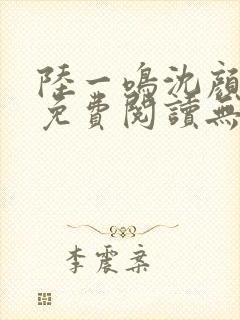 陸一鳴沈顔
免費閱讀無
李震案